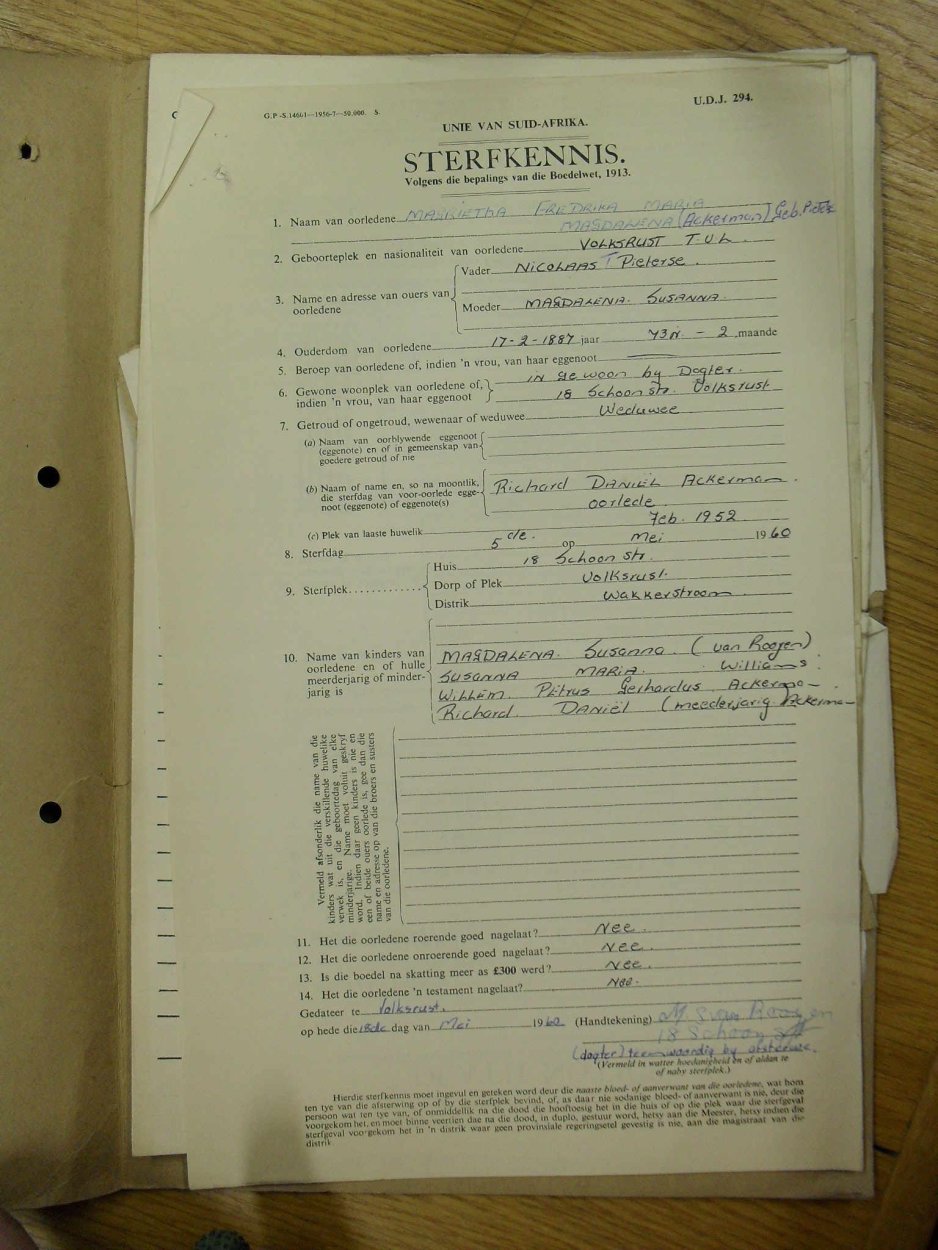 G.P.-S.14601—1956-7—50,000. S.
U.D.J. 294.
UNIE VAN SUID-AFRIKA.
STERFKENNIS.
Volgens die bepalings van die Boedelwet, 1913.
1. Naam van oorledene MAGRIETHA FREDRIKA MARIA
MAGDALENA (Ackerman) Geb.
2. Geboorteplek en nasionaliteit van oorledene VOLKSRUST T.V.L.
3. Name en adresse van ouers van oorledene
Vader NICOLAAS T Pieterse.
Moeder MAGDALENA. SUSANNA.
4. Ouderdom van oorledene 17-2-1887 jaar 73 - 2 maande
5. Beroep van oorledene of, indien 'n vrou, van haar eggenoot
6. Gewone woonplek van oorledene of, indien 'n vrou, van haar eggenoot
in gewoon by Dogter.
18 Schoon str. Volksrust
7. Getroud of ongetroud, wewenaar of weduwee Weduwee
(a) Naam van oorblywende eggenoot
(eggenote) en of in gemeenskap van
goedere getroud of nie
(b) Naam of name en, so na moontlik,
die sterfdag van voor-oorlede egge-
noot (eggenote) of eggenote(s)
Richard DANIEL Ackerman.
oorlede
Feb. 1952
(c) Plek van laaste huwelik
8. Sterfdag 5 de. op Mei 1960
9. Sterfplek
Huis 18 Schoon str.
Dorp of Plek Volksrust.
Distrik Wakkerstroom
10. Name van kinders van
oorledene en of hulle
meerderjarig of minder-
jarig is
MAGDALENA. Susanna. (van Rooyen)
SUSANNA MARIA. Williams.
WILLEM. PETRUS Gerhardus Ackerman
Richard. DANIEL (meederjarig Ackerman
Vermeld afsonderlik die name van die
kinders wat uit die verskillende huwelike
verwek is, en die geboortedag van elke
minderjarige. Name moet voluit geskryf
word. Indien daar geen kinders is nie en
een of beide ouers oorlede is, gee dan die
name en adresse op van die broers en susters
van die oorledene.
11. Het die oorledene roerende goed nagelaat? Nee.
12. Het die oorledene onroerende goed nagelaat? Nee.
13. Is die boedel na skatting meer as £300 werd? Nee.
14. Het die oorledene 'n testament nagelaat? Nee.
Gedateer te Volksrust.
op hede die 18de dag van Mei 1960 (Handtekening) M. S van Rooyen
18 Schoon str
(dogter) teenwoordig by afsterwe.
(Vermeld in watter hoedanigheid en of aldan te
of naby sterfplek.)
Hierdie sterfkennis moet ingevul en geteken word deur die naaste bloed- of aanverwant van die oorledene, wat hom
ten tye van die afsterwing op of by die sterfplek bevind, of, as daar nie sodanige bloed- of aanverwant is nie, deur die
persoon wat ten tye van, of onmiddellik na die dood die hooftoesig het in die huis of op die plek waar die sterfgeval
voorgekom het, en moet binne veertien dae na die dood, in duplo, gestuur word, hetsy aan die Meester, hetsy indien die
sterfgeval voorgekom het in 'n distrik waar geen provinsiale regeringsetel gevestig is nie, aan die magistraat van die
distrik